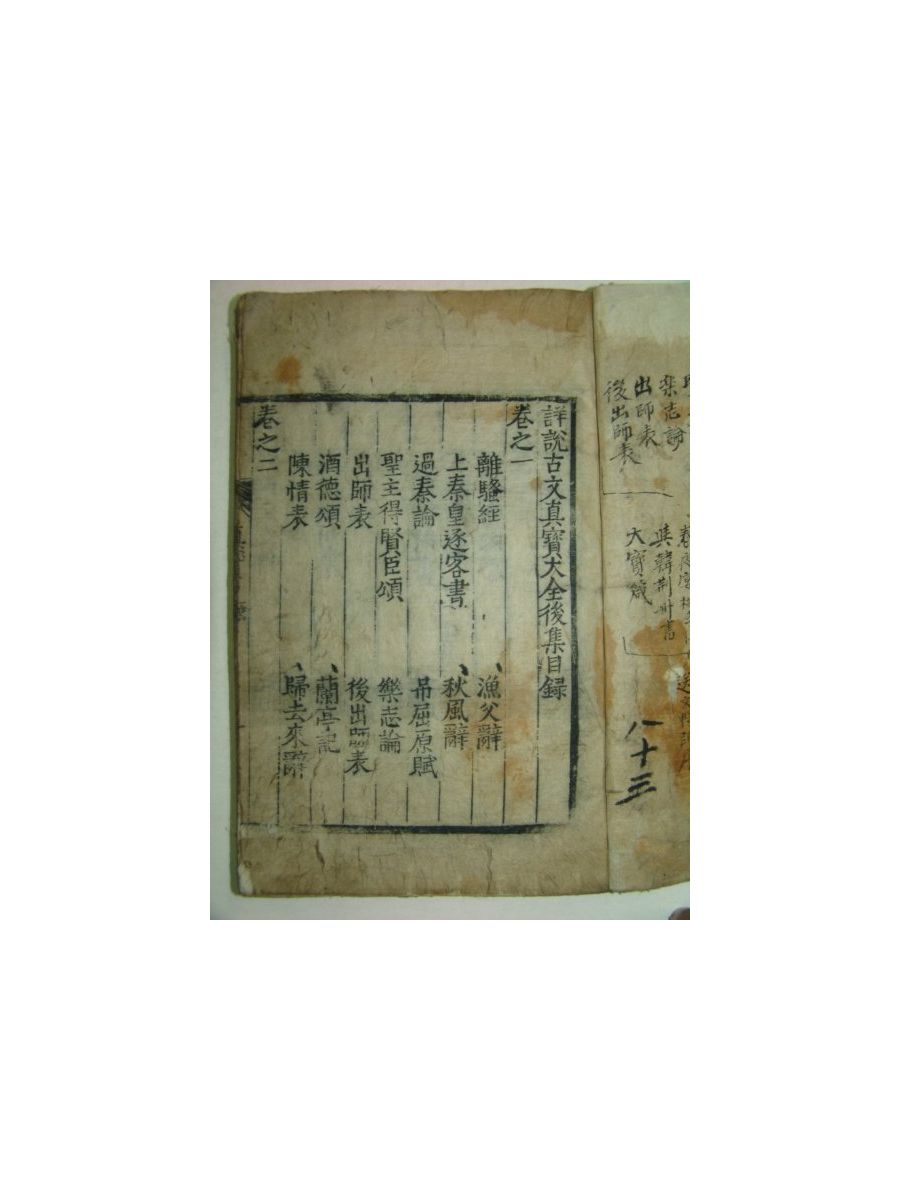 出師表
後出師表
大寶箴
八十三
詳說古文真寶大全後集目録
卷之一
離騷經 漁父辭
上秦皇逐客書 秋風辭
過秦論 吊屈原賦
聖主得賢臣頌 樂志論
出師表 後出師表
酒德頌 蘭亭記
陳情表 歸去來辭
卷之二